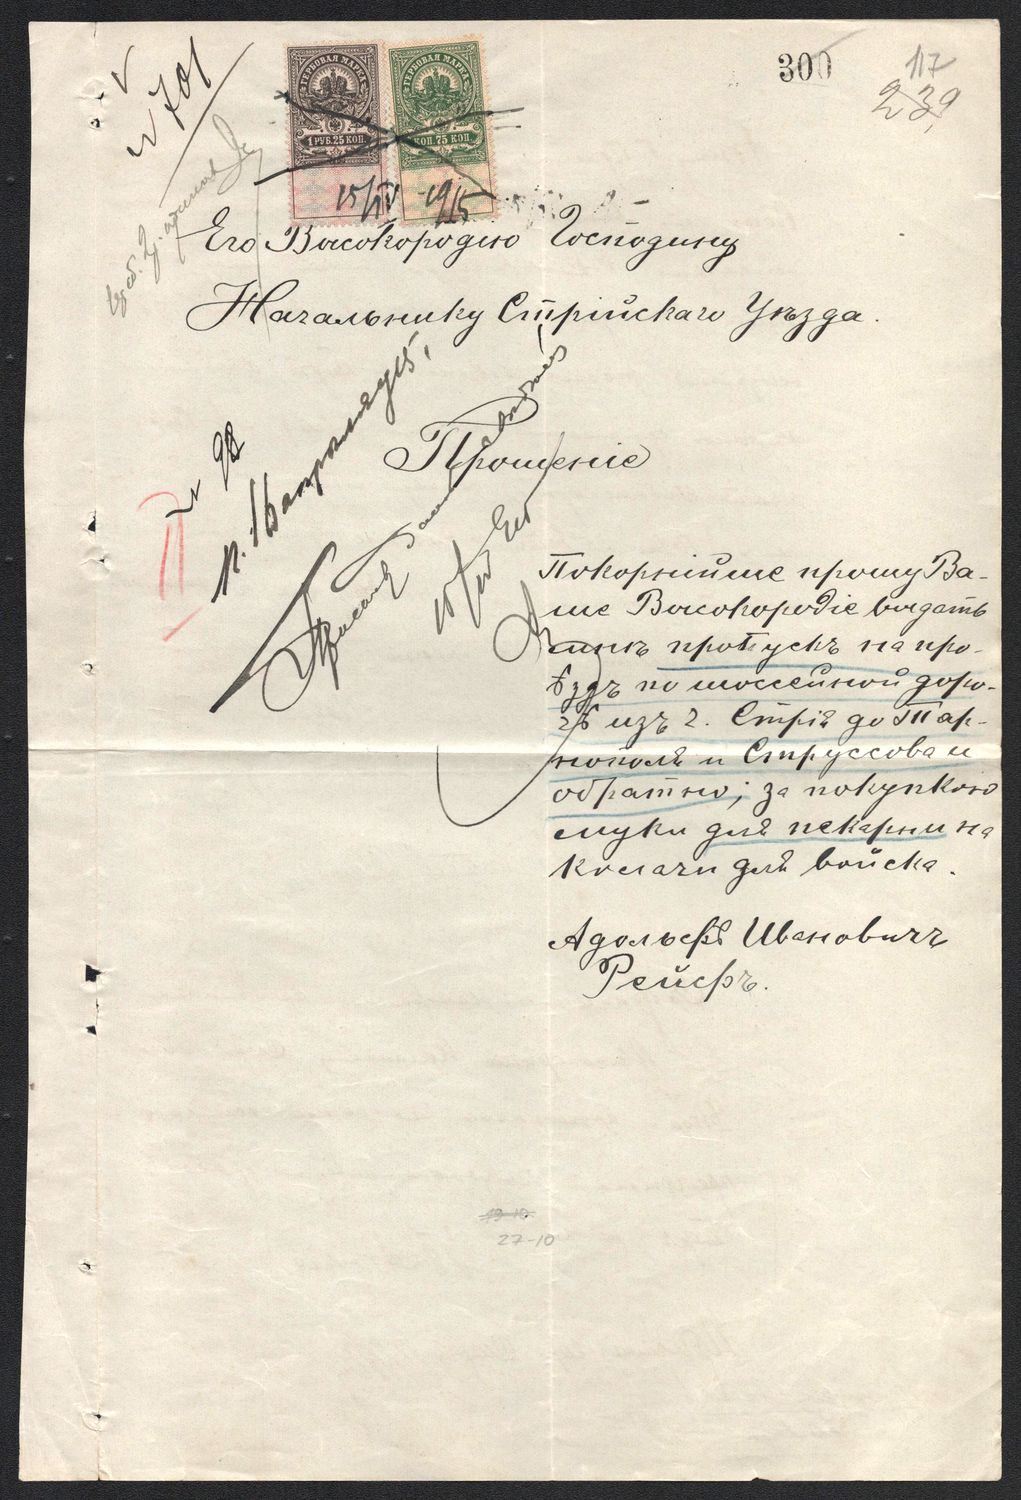 √
№ 701
300
117
239
ГЕРБОВАЯ МАРКА
1 РУБ. 25 КОП.
ГЕРБОВАЯ МАРКА
КОП. 75 КОП.
15/IV 1915
Его Высокородію Господину
Начальнику Стрійскаго Уѣзда.
№ 98
п. 16 апрѣля 915,
Прошеніе
15/IV 915
Покорнѣйше прошу Ва-
ше Высокородіе выдать
мнѣ пропускъ на про-
ѣздъ по шоссейной доро-
гѣ изъ г. Стрія до Тар-
нополя и Струссова и
обратно; за покупкою
муки для пекарни на
колачи для войска.
Адольфъ Ивановичъ
Рейфъ.
19-10
27-10